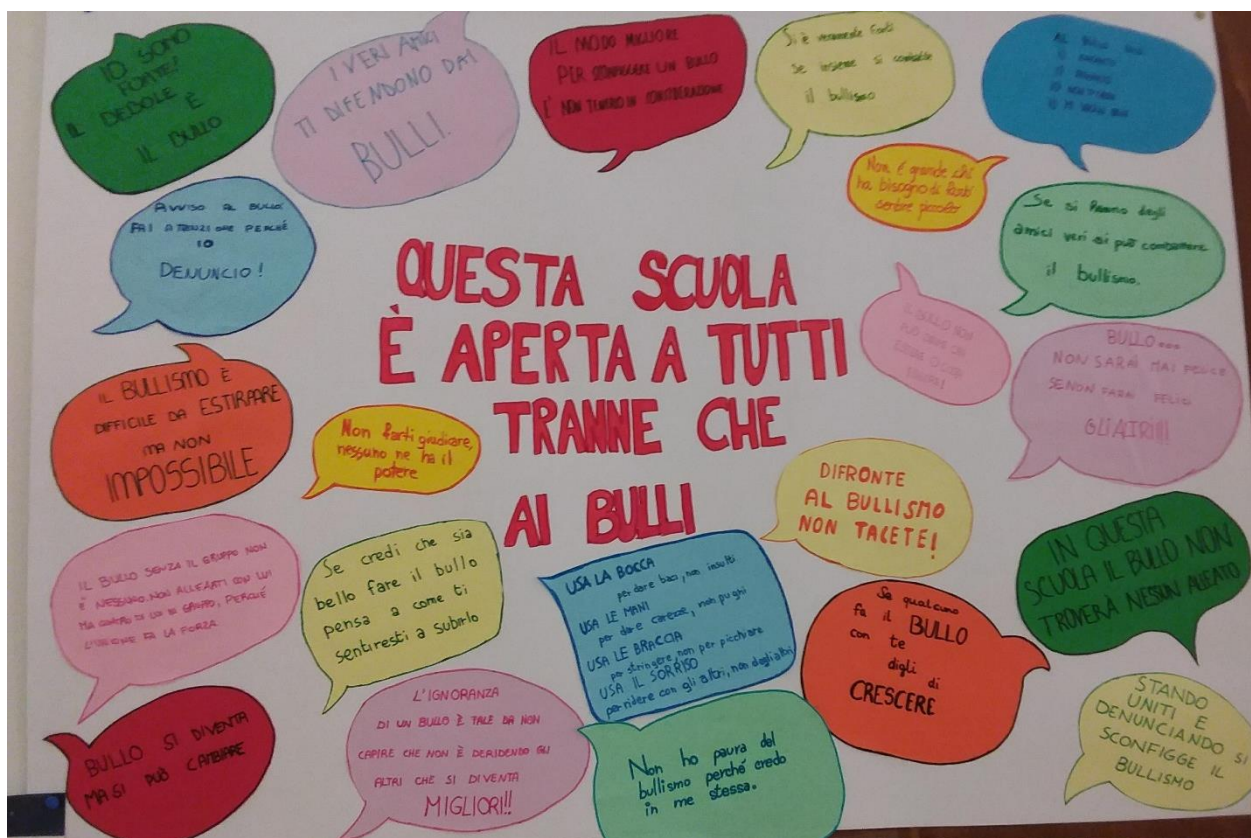 IO SONO
FORTE!
IL DEDOLE È
IL BULLO
I VERI AMICI
TI DIFENDONO DAI
BULLI.
IL MODO MIGLIORE
PER SCONFIGGERE UN BULLO
E' NON TENERLO IN CONSIDERAZIONE
Si è veramente forti
se insieme si combatte
il bullismo
AL BULLO
Non è grande chi
ha bisogno di farti
sentire piccolo
AVVISO AL BULLO:
FAI ATTENZIONE PERCHÉ
IO
DENUNCIO!
Se si hanno degli
amici veri si può combattere
il bullismo.
QUESTA SCUOLA
È APERTA A TUTTI
TRANNE CHE
AI BULLI
IL BULLO NON
BULLO...
NON SARAI MAI FELICE
SE NON FARAI FELICI
GLI ALTRI!!!
IL BULLISMO È
DIFFICILE DA ESTIRPARE
MA NON
IMPOSSIBILE
Non farti giudicare,
nessuno ne ha il
potere
DIFRONTE
AL BULLISMO
NON TACETE!
IN QUESTA
SCUOLA IL BULLO NON
TROVERÀ NESSUN ALLEATO
IL BULLO SENZA IL GRUPPO NON
È NESSUNO. NON ALLEARTI CON LUI
MA CONTRO DI LUI IN GRUPPO, PERCHÉ
L'UNIONE FA LA FORZA
Se credi che sia
bello fare il bullo
pensa a come ti
sentiresti a subirlo
USA LA BOCCA
per dare baci, non insulti
USA LE MANI
per dare carezze, non pugni
USA LE BRACCIA
per stringere, non per picchiare
USA IL SORRISO
per ridere con gli altri, non degli altri
Se qualcuno
fa il BULLO
con te
digli di
CRESCERE
BULLO SI DIVENTA
MA SI PUÒ CAMBIARE
L'IGNORANZA
DI UN BULLO È TALE DA NON
CAPIRE CHE NON È DERIDENDO GLI
ALTRI CHE SI DIVENTA
MIGLIORI!!
Non ho paura del
bullismo perché credo
in me stessa.
STANDO
UNITI E
DENUNCIANDO SI
SCONFIGGE IL
BULLISMO